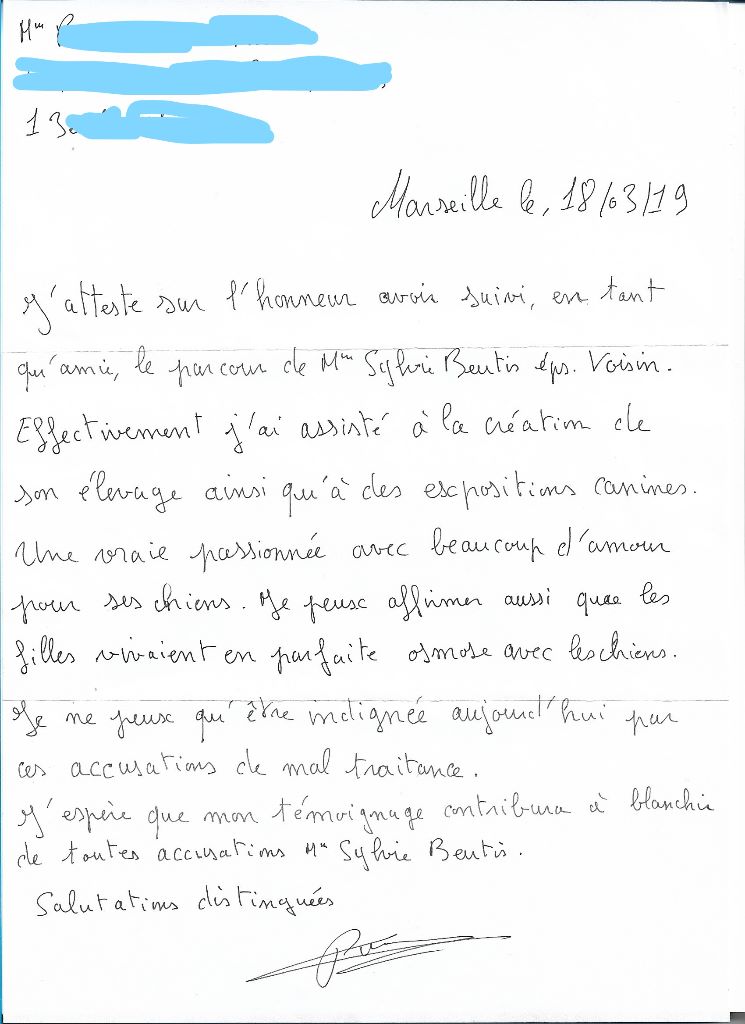 Mme
13
Marseille le, 18/03/19
J'atteste sur l'honneur avoir suivi, en tant
qu'amie, le parcour de Mme Sylvie Beutis éps. Voisin.
Effectivement j'ai assisté à la création de
son élevage ainsi qu'à des expositions canines.
Une vraie passionnée avec beaucoup d'amour
pour ses chiens. Je peux affirmer aussi que les
filles vivaient en parfaite osmose avec les chiens.
Je ne peux qu'être indignée aujourd'hui par
ces accusations de mal traitance.
J'espère que mon témoignage contribura à blanchir
de toutes accusations Me Sylvie Beutis.
Salutations distinguées